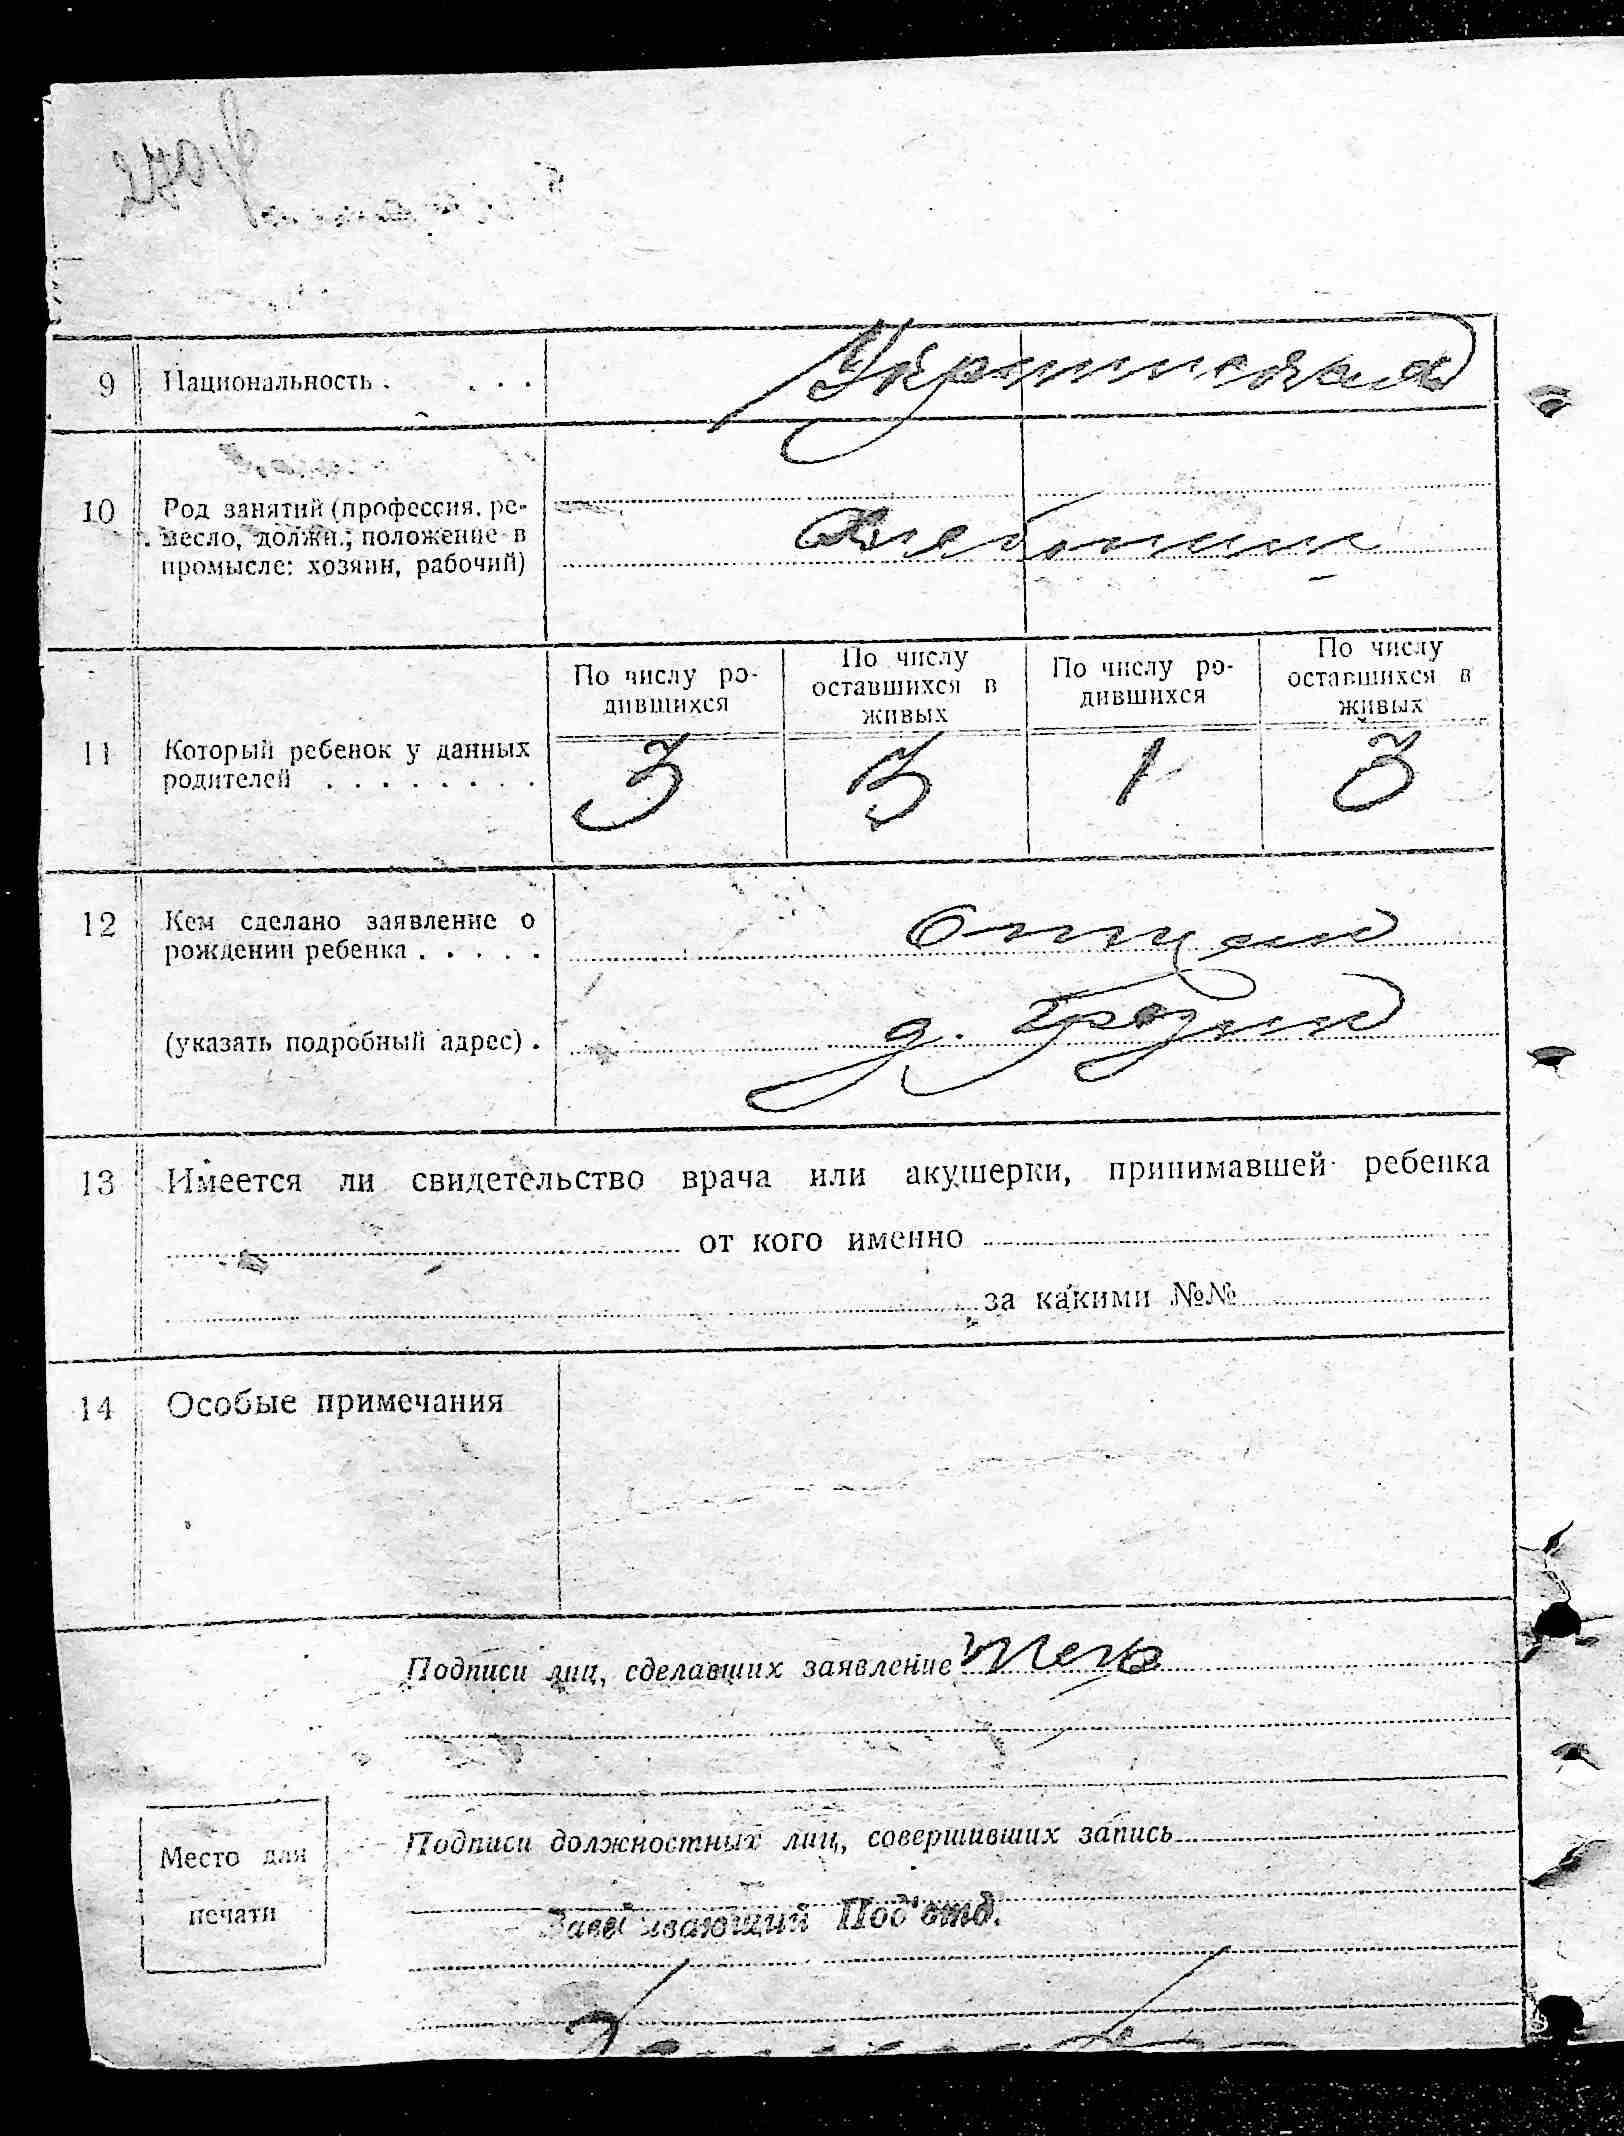 9 Национальность . . . .
Украинская
10 Род занятий (профессия, ре-
месло, должн.; положение в
промысле: хозяин, рабочий)
Хлебопашц
По числу ро-
дившихся
По числу
оставшихся в
живых
По числу ро-
дившихся
По числу
оставшихся в
живых
11 Который ребенок у данных
родителей . . . . . . . .
3 3 1 3
12 Кем сделано заявление о
рождении ребенка . . . . .
Отцем
(указать подробный адрес) .
д.
13 Имеется ли свидетельство врача или акушерки, принимавшей ребенка
от кого именно
за какими №№
14 Особые примечания
Подписи лиц, сделавших заявление
Подписи должностных лиц, совершивших запись
Место для
печати
Заведывающий Под'отд.